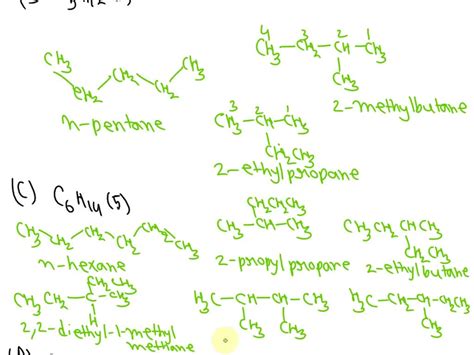 CH3
CH2
CH2
CH2
CH3
n-pentane
4 3 2 1
CH3-CH2-CH-CH3
CH3
2-methylbutane
3 2 1
CH3-CH-CH3
CH2CH3
2-ethylpropane
(C) C6H14 (5)
CH3 CH2 CH2 CH2 CH2 CH3
n-hexane
CH2CH2CH3
CH3-CH-CH3
2-propylpropane
CH3CH2CHCH3
CH2CH3
2-ethylbutane
CH2CH3
CH3CH2-C-CH3
H
2,2-diethyl-1-methyl
methane
H3C-CH-CH-CH3
CH3 CH3
H3C-CH2-CH-CH2CH3
CH3